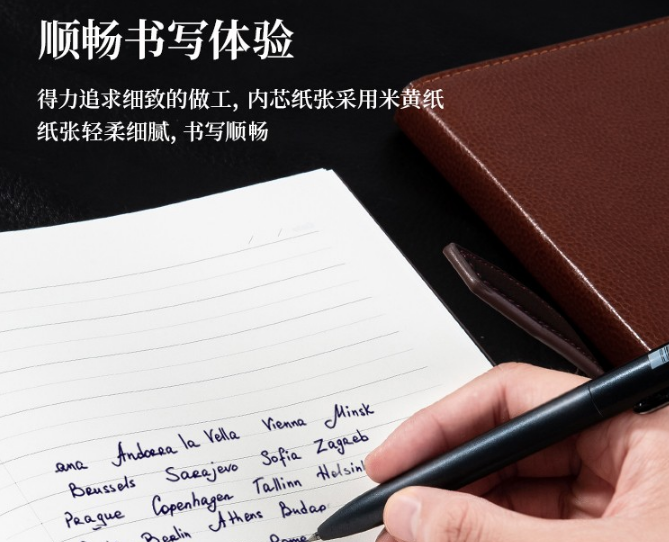 顺畅书写体验
得力追求细致的做工, 内芯纸张采用米黄纸
纸张轻柔细腻, 书写顺畅
/ /
ana Andorra la Vella Vienna Minsk
Brussels Sarajevo Sofia Zagreb
Prague Copenhagen Tallinn Helsin
Berlin Athens Budap
Rome